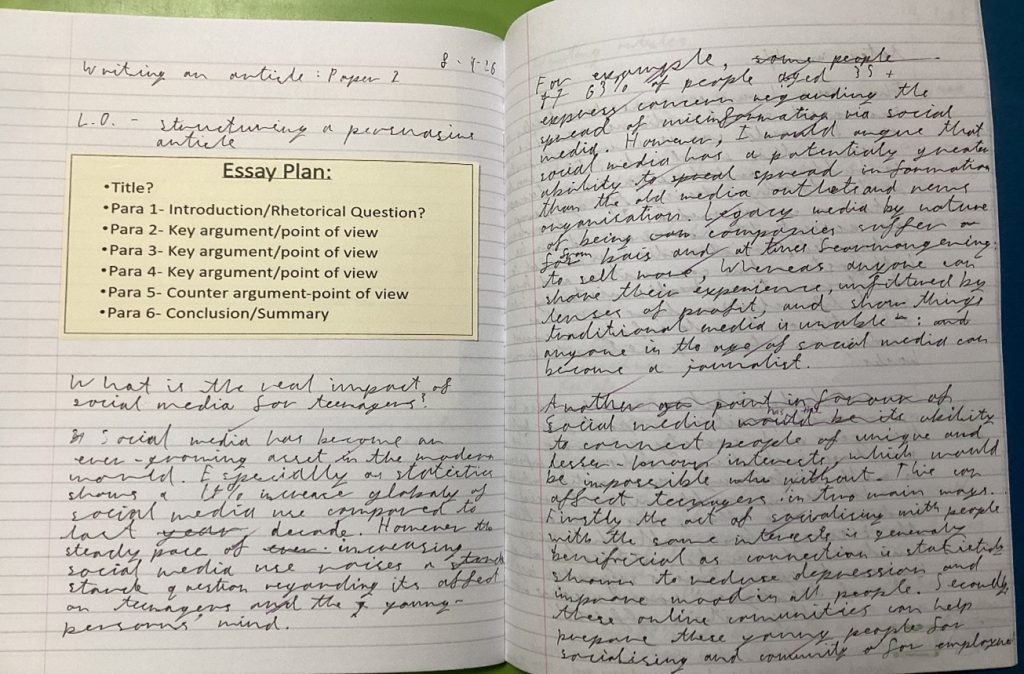 8-4-26
Writing an article: Paper 2
L.O. - structuring a persuasive
article
Essay Plan:
•Title?
•Para 1- Introduction/Rhetorical Question?
•Para 2- Key argument/point of view
•Para 3- Key argument/point of view
•Para 4- Key argument/point of view
•Para 5- Counter argument-point of view
•Para 6- Conclusion/Summary
What is the real impact of
social media for teenagers?
Social media has become an
ever-growing asset in the modern
world. Especially as statistics
shows a increase globaly of
social media use compared to
last year decade. However the
steady pace of ever increasing
social media use raises a
starck question regarding its affect
on teenagers and the young-
persons mind.
For example, some people
63% of people aged 35+
express concern regarding the
spread of misinformation via social
media. However, I would argue that
social media has a potentialy greater
ability to spread information
than the old media outlets and news
organisation. Legacy media by nature
of being companies suffer
from bais and at times fearmongering
to sell more, Whereas anyone can
share their experience, unfiltured by
lenses of profit, and show things
traditional media is unable : and
anyone in the age of social media can
become a journalist.
Another point in favour of
social media would be its ability
to connect people of unique and
lesser-known interests, which would
be impossible without. This can
affect teenagers in two main ways.
Firstly the act of socialising with people
with the same interests is generaly
benifricial as connection is
shown to reduse depression and
improve mood in all people. Secondly,
these online comunities can help
prepare these young people for
socialising and comunity for